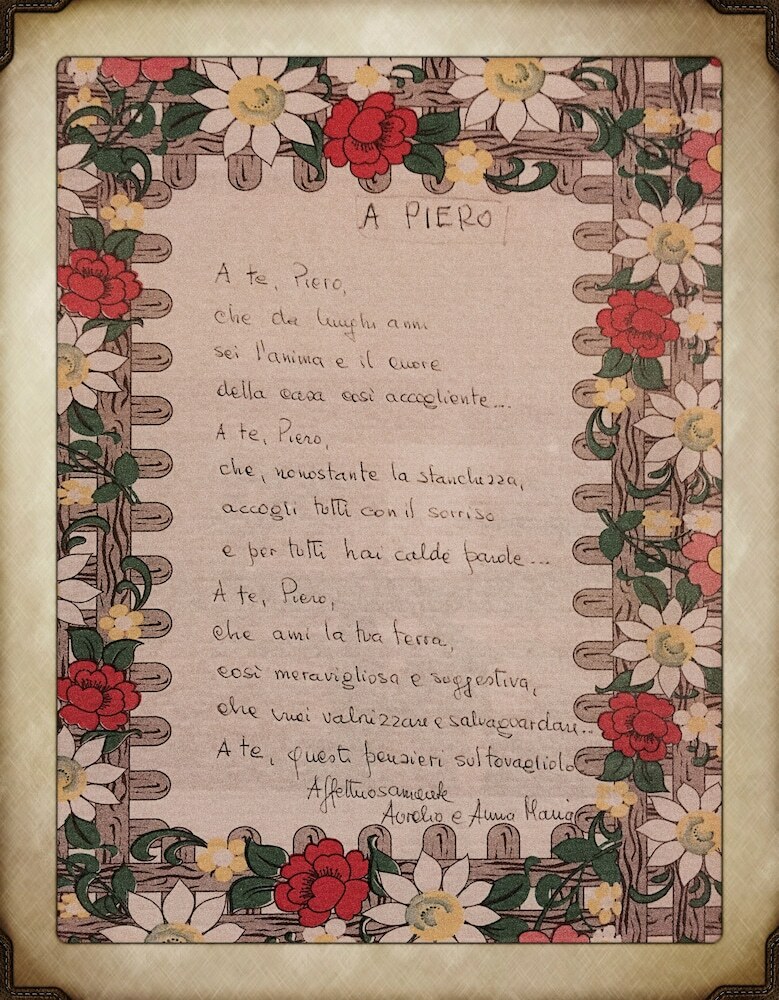 A PIERO
A te, Piero,
che da lunghi anni
sei l'anima e il cuore
della casa così accogliente...
A te, Piero,
che, nonostante la stanchezza,
accogli tutti con il sorriso
e per tutti hai calde parole...
A te, Piero,
che ami la tua terra,
così meravigliosa e suggestiva,
che vuoi valorizzare e salvaguardare...
A te, questi pensieri sul tovagliolo
Affettuosamente
Aurelio e Anna Maria